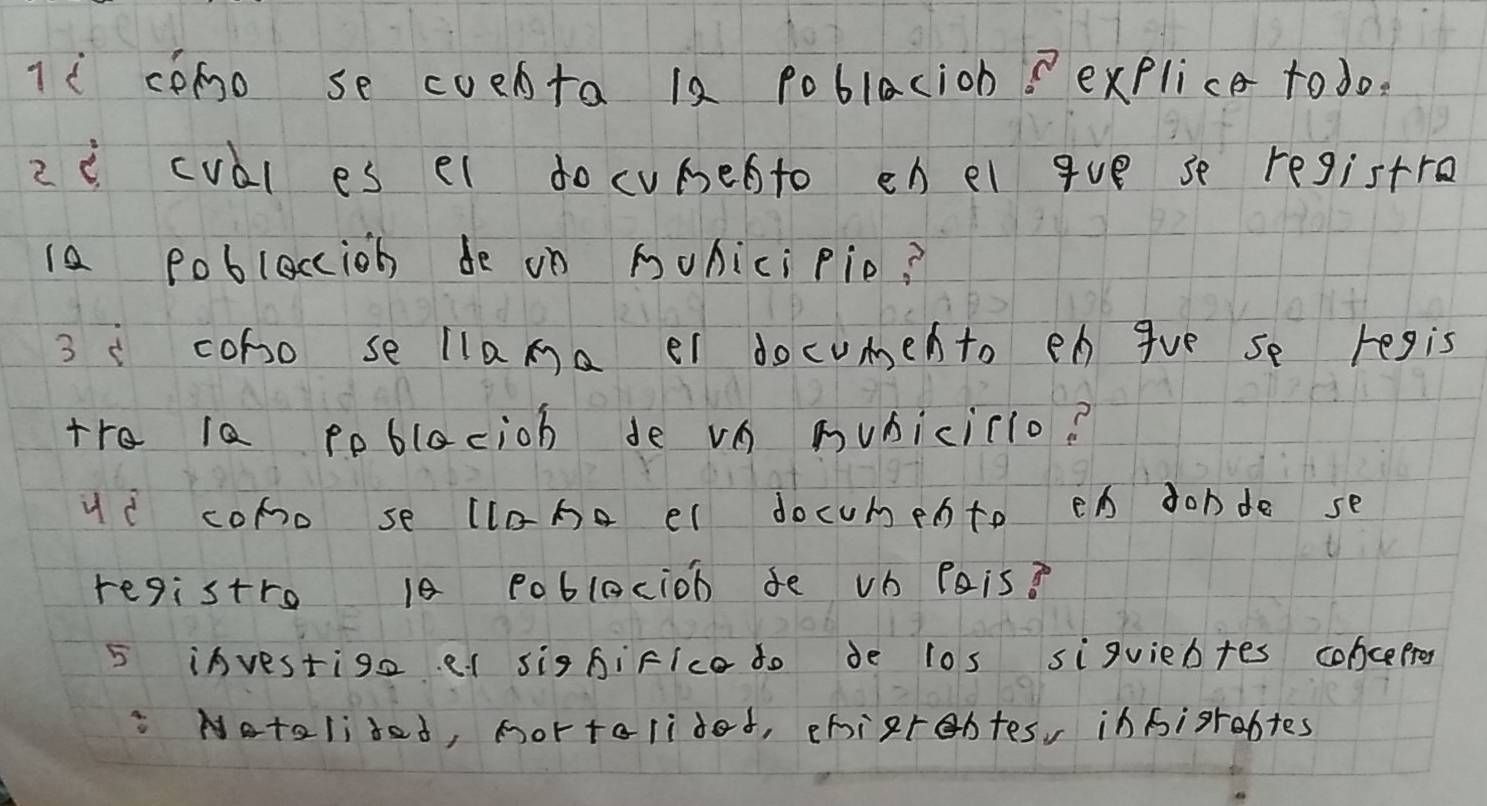 1 ¿ cómo se cuenta la poblacion? explica todo.
2 ¿ cuàl es el documento en el que se registra
la poblacción de un municipio?
3 ¿ como se llama el documento en que se regis
tra la población de un municiclo?
4 ¿ como se llama el documento en donde se
registra la población de un Pais?
5 investiga el significado de los siguientes conceptos
: Natalidad, mortalidad, emigrantes, inmigrantes